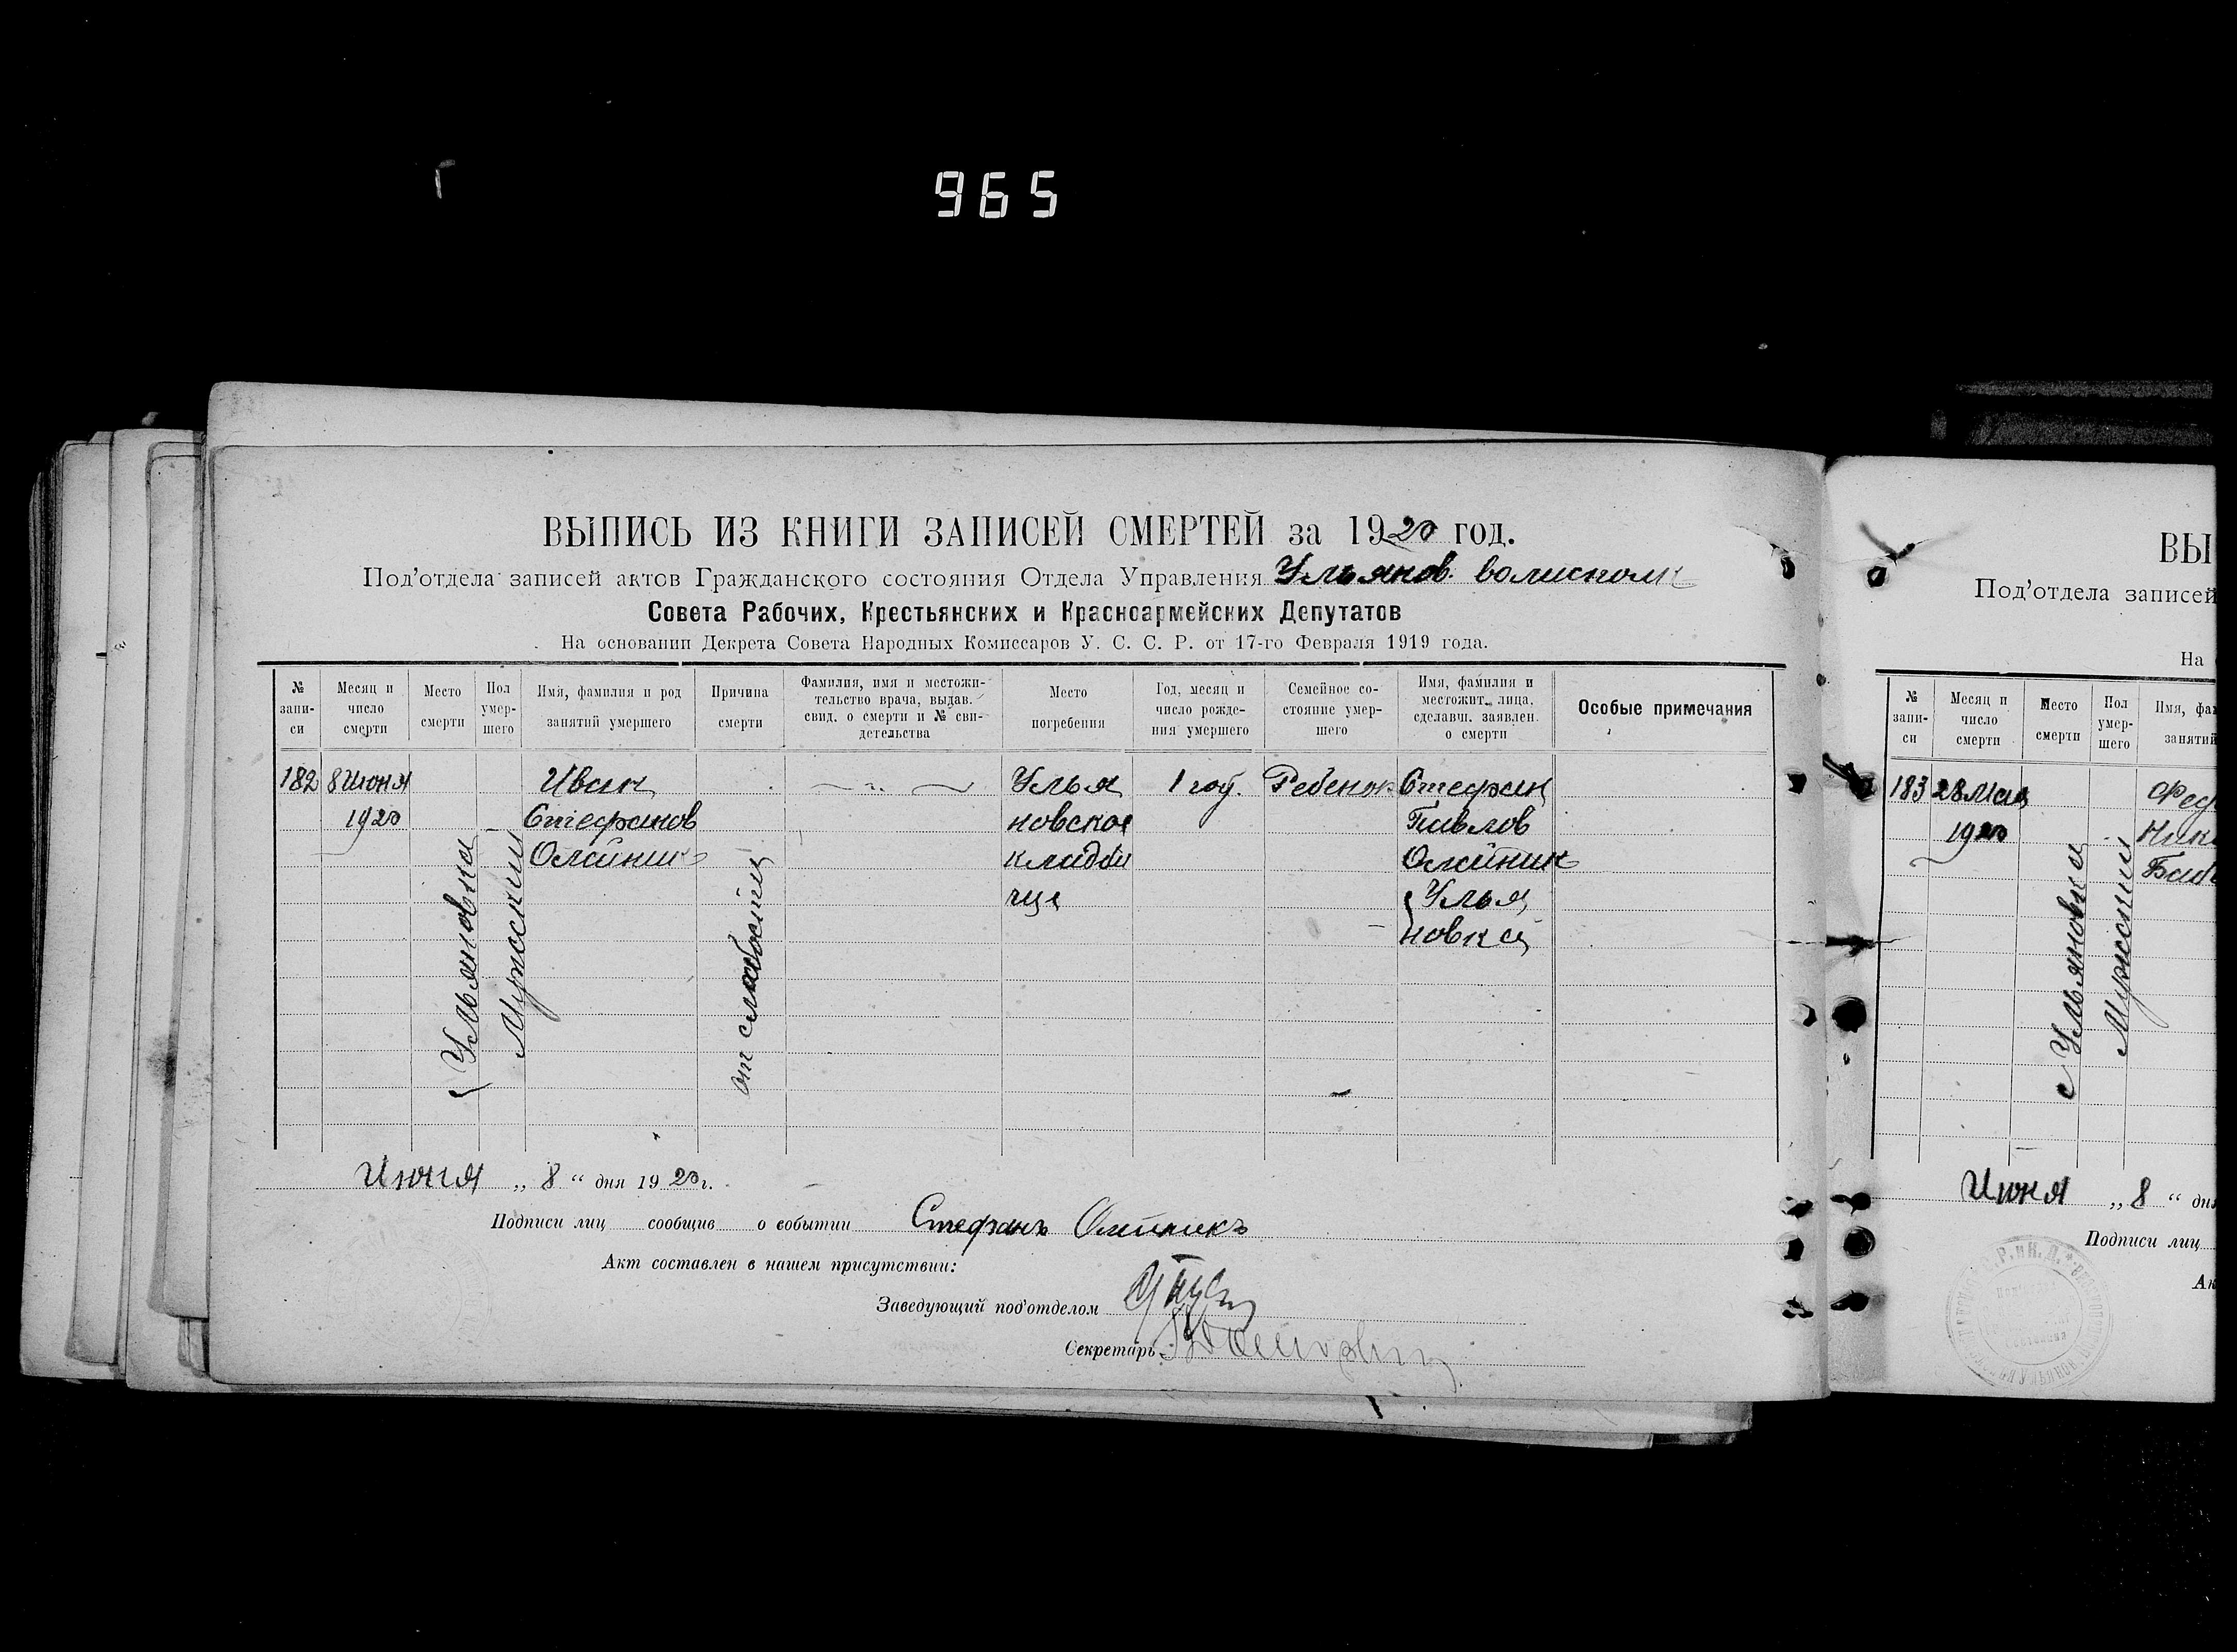 965
ВЫПИСЬ ИЗ КНИГИ ЗАПИСЕЙ СМЕРТЕЙ за 1920 год.
Под'отдела записей актов Гражданского состояния Отдела Управления Ульянов. волисполк
Совета Рабочих, Крестьянских и Красноармейских Депутатов
На основании Декрета Совета Народных Комиссаров У. С. С. Р. от 17-го Февраля 1919 года.
№ запи-си
Месяц и число смерти
Место смерти
Пол умер-шего
Имя, фамилия и род занятий умершего
Причина смерти
Фамилия, имя и местожи-тельство врача, выдав. свид. о смерти и № сви-детельства
Место погребения
Год, месяц и число рожде-ния умершего
Семейное со-стояние умер-шего
Имя, фамилия и местожит. лица, сделавш. заявлен. о смерти
Особые примечания
182
8 Июня
1920
с Ульяновка
Мужской
Иван
Стефанов
Олейник
от слабости
Улья
новское
кладби
ще
1 год.
Ребенок
Стефан
Павлов
Олейник
с Улья
новка
Июня „ 8 “ дня 1920 г.
Подписи лиц сообщив о событии Стефанъ Олейникъ
Акт составлен в нашем присутствии:
Заведующий под'отделом
Секретарь
ВЫ
Под'отдела записей
На
№ запи-си
Месяц и число смерти
Место смерти
Пол умер-шего
Имя, фа
занятий
183
28 Мая
1920
с Ульяновка
Мужской
Фед
Ника
Июня „ 8 “ дн
Подписи лиц
Ак